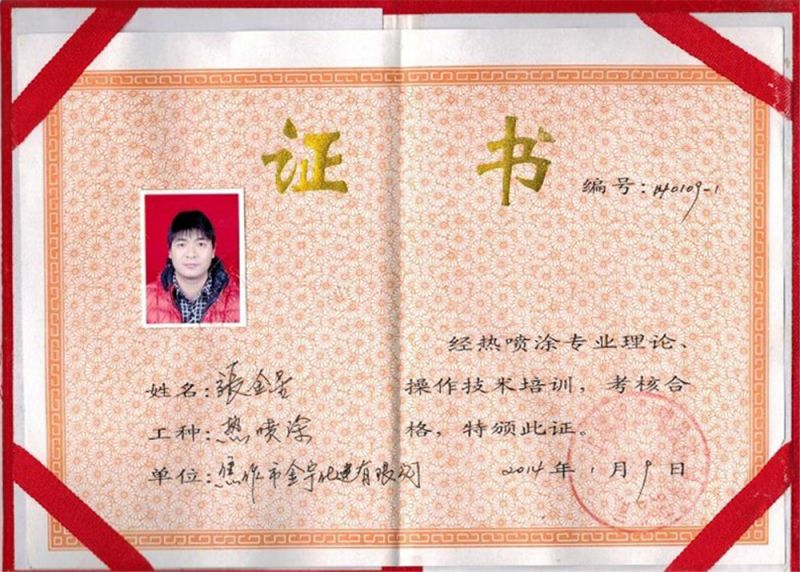 证书
编号:140109-1
姓名:張金星
工种:热喷涂
单位:焦作市金宇化建有限公司
经热喷涂专业理论、
操作技术培训，考核合
格，特颁此证。
2014年1月9日